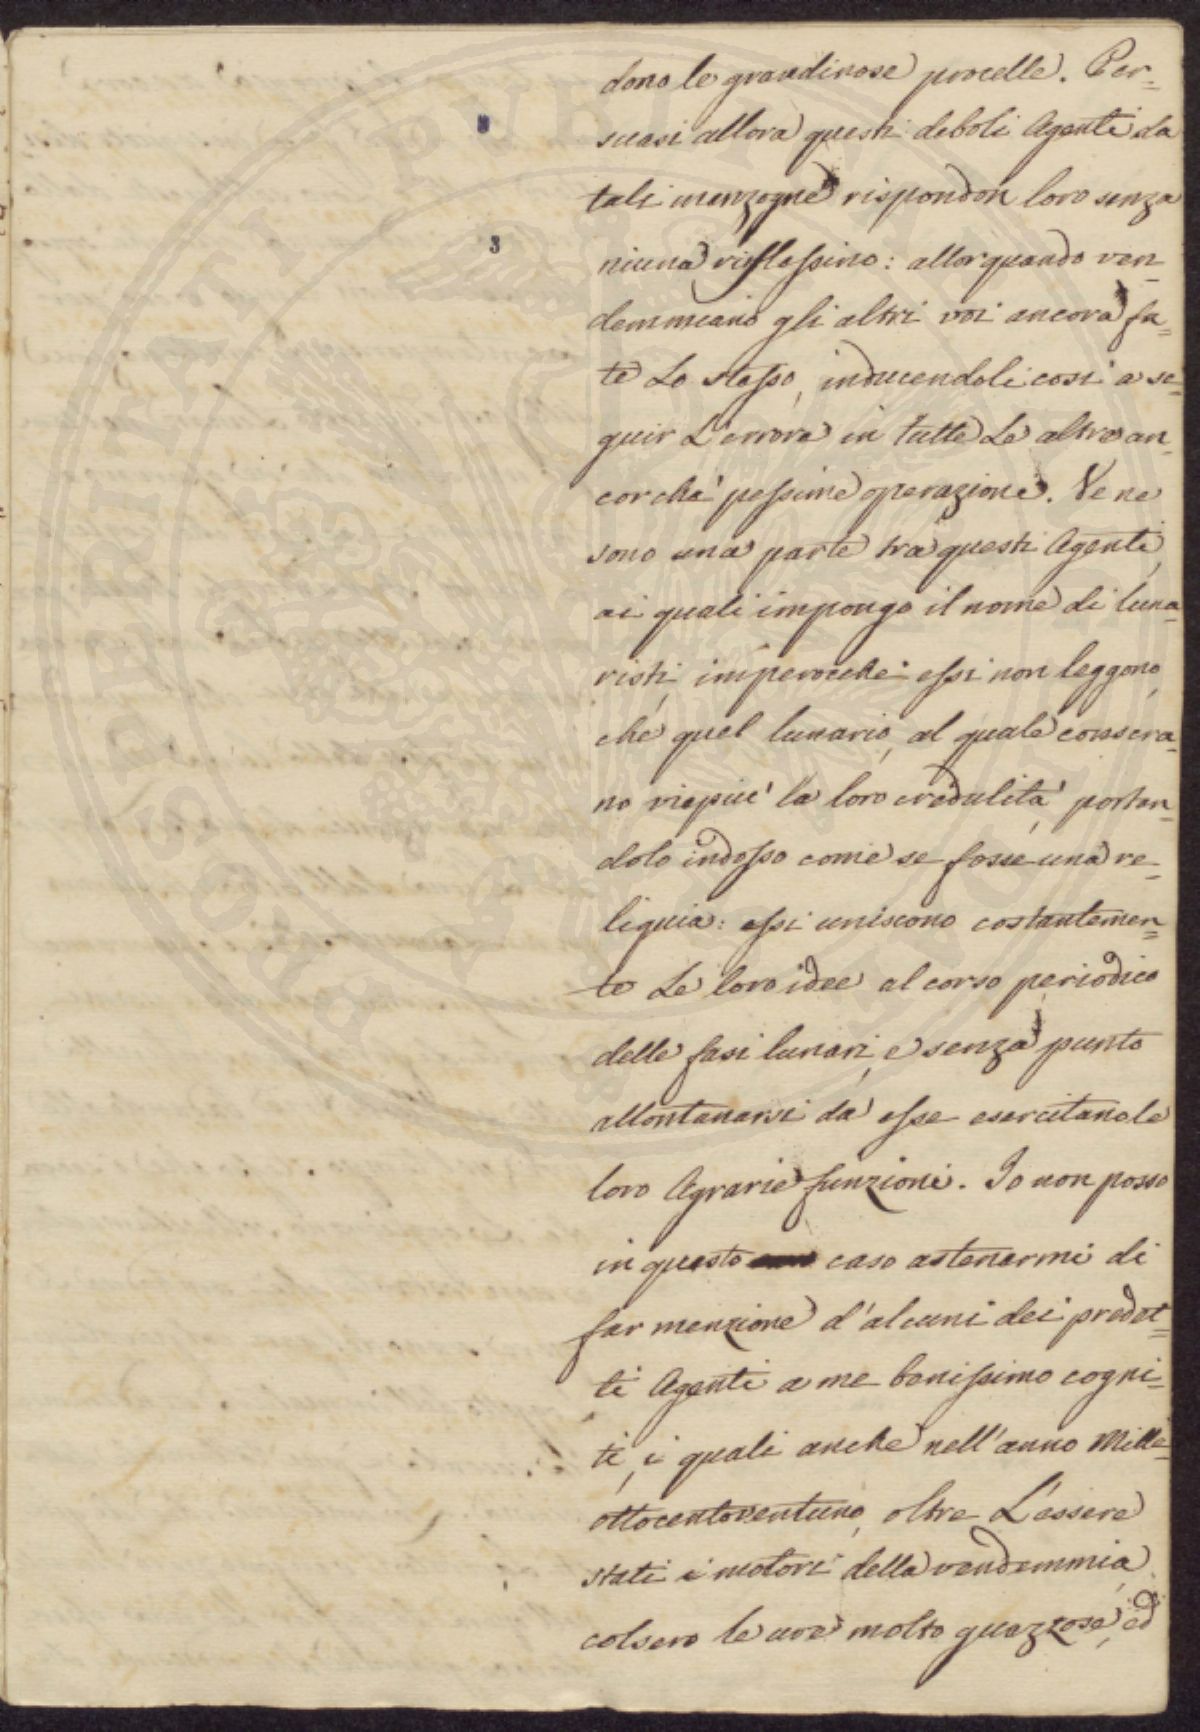 dono le grandinose procelle. Per=
suasi allora questi deboli Agenti da
tali menzogne rispondon loro senza
niuna riflessione: allorquando ven=
demmiano gli altri voi ancora fa=
te Lo stesso, inducendoli così a se=
guir L'errore in tutte Le altre an=
corchè pessime operazione. Ve ne
sono una parte tra questi Agenti,
ai quali impongo il nome di luna=
risti, imperocchè essi non leggono,
che quel lunario, al quale consera=
no viepiù la loro credulità, portan=
dolo indosso come se fosse una re=
liquia: essi uniscono costantemen=
te Le loro idee al corso periodico
delle fasi lunari, e senza punto
allontanarsi da esse esercitano le
loro Agrarie funzioni. Io non posso
in questo caso astenermi di
far menzione d'alcuni dei predet=
ti Agenti a me benissimo cogni=
ti, i quali anche nell'anno Mille
ottocentoventuno, oltre L'essere
stati i motori della vendemmia,
colsero le uve molto guazzose, ed